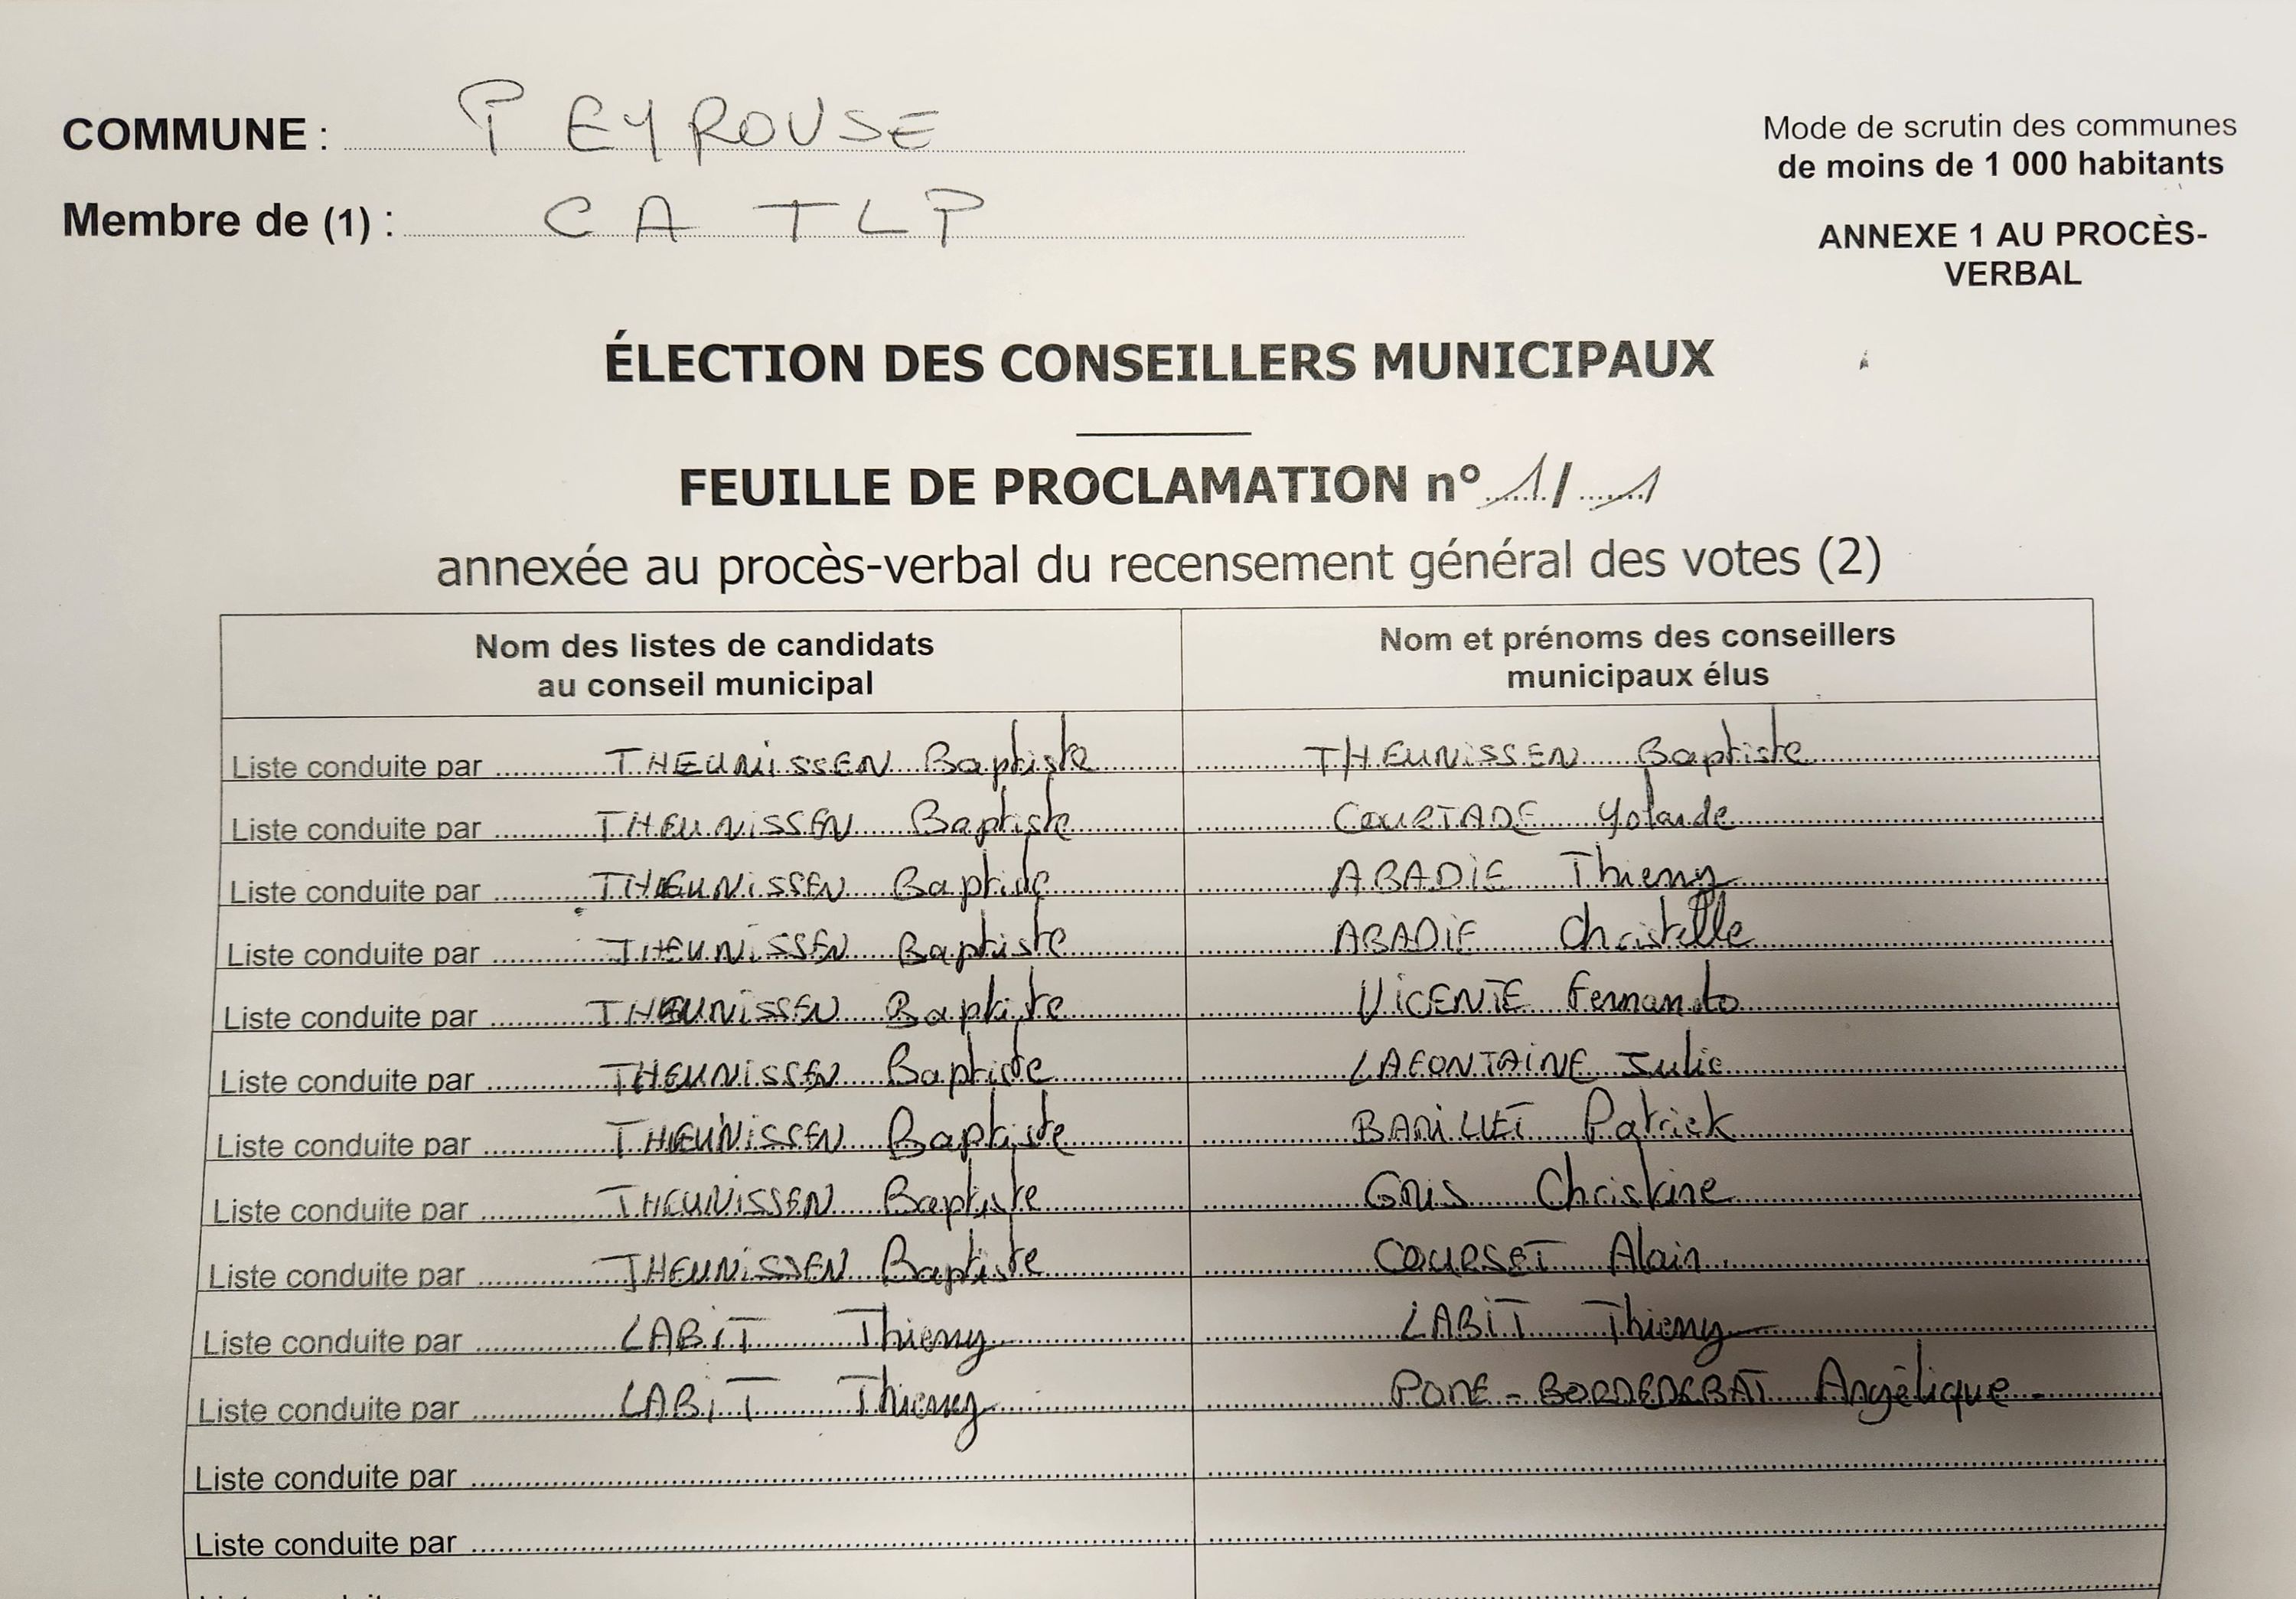 COMMUNE : PEYROUSE
Mode de scrutin des communes
de moins de 1 000 habitants
Membre de (1) : CA TLP
ANNEXE 1 AU PROCÈS-
VERBAL
ÉLECTION DES CONSEILLERS MUNICIPAUX
FEUILLE DE PROCLAMATION n° 1/1
annexée au procès-verbal du recensement général des votes (2)
Nom des listes de candidats
au conseil municipal
Nom et prénoms des conseillers
municipaux élus
Liste conduite par THEUNISSEN Baptiste THEUNISSEN Baptiste
Liste conduite par THEUNISSEN Baptiste COURTADE Yolande
Liste conduite par THEUNISSEN Baptiste ABADIE Thierry
Liste conduite par THEUNISSEN Baptiste ABADIE Christelle
Liste conduite par THEUNISSEN Baptiste VICENTE Fernando
Liste conduite par THEUNISSEN Baptiste LAFONTAINE Julie
Liste conduite par THEUNISSEN Baptiste Patrick
Liste conduite par THEUNISSEN Baptiste Christine
Liste conduite par THEUNISSEN Baptiste COURSET Alain
Liste conduite par LABIT Thierry LABIT Thierry
Liste conduite par LABIT Thierry Angélique
Liste conduite par
Liste conduite par